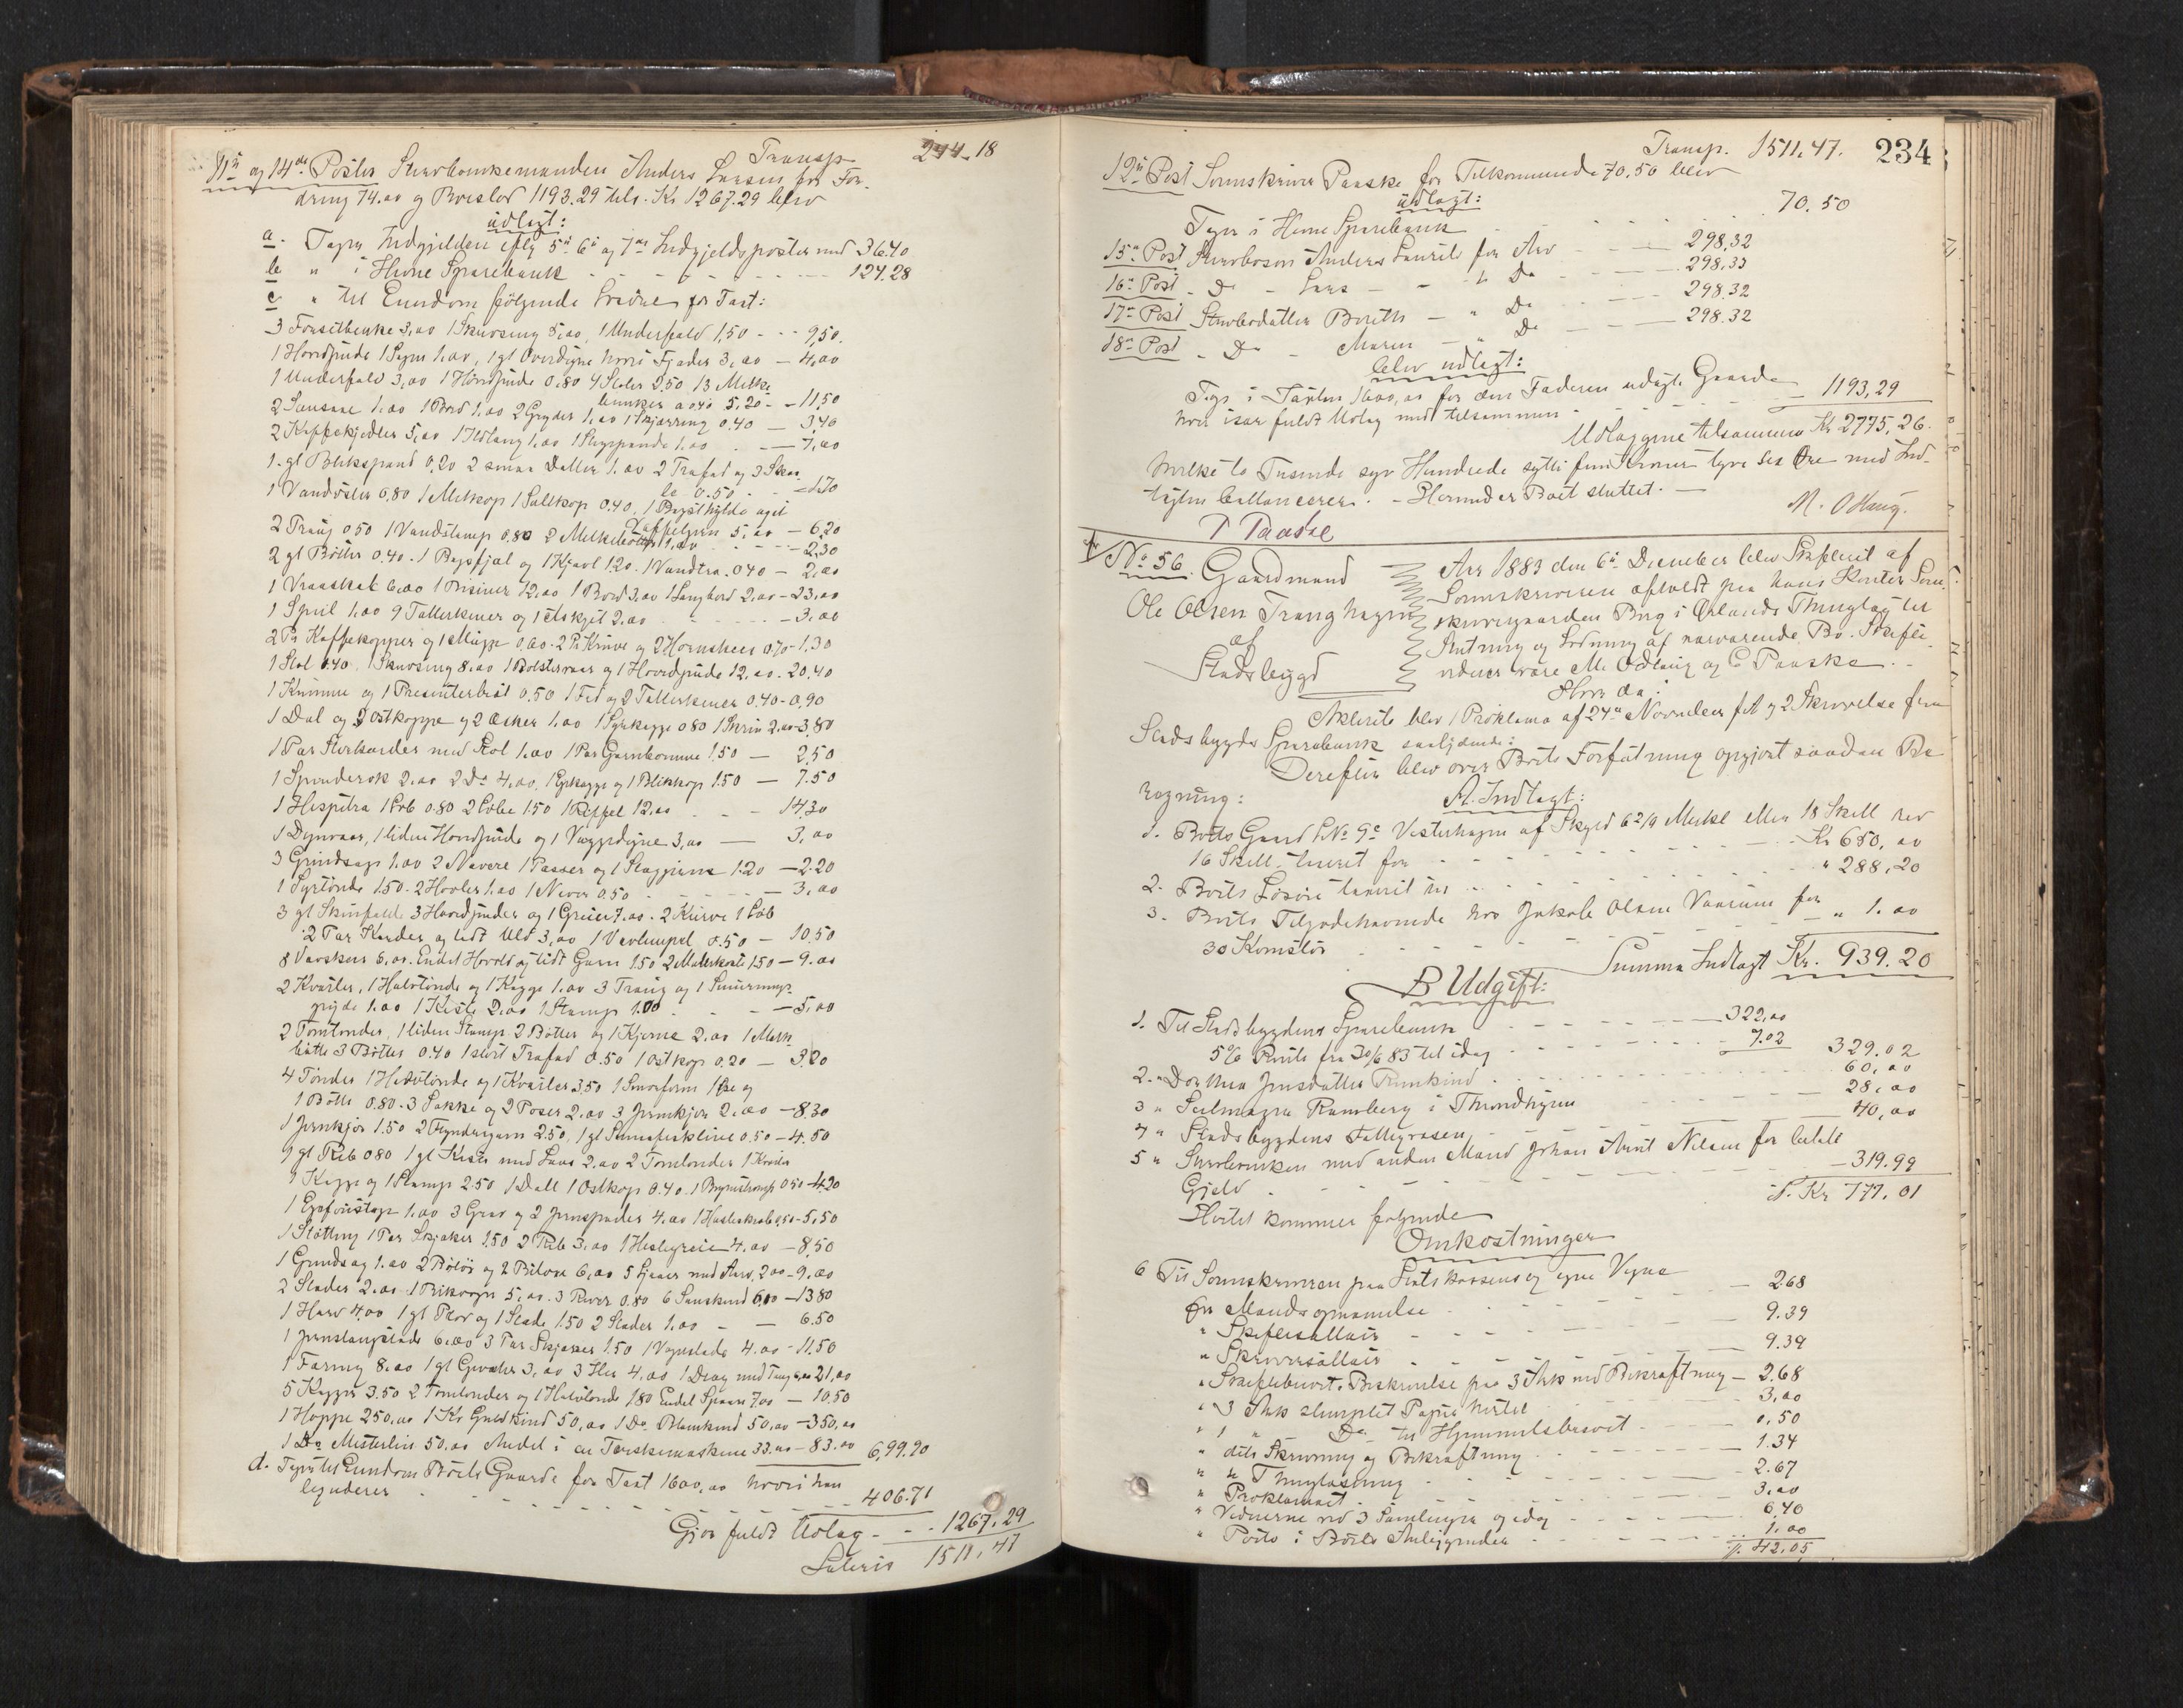 Transp 244.18
11te og 14de Poster Sterboenkemanden Anders Larsen for For-
dring 74.00 og Boeslod 1193.29 tils. Kr 1267.29 blev
udlagt:
a. Tager Indgjelden eftr 5te 6te og 7de Indgjeldsposter med 36.40
b " i Hevne Sparebank 124.28
c " til Eiendom følgende Løsøre for Taxt:
3 Forsitbenke 3,00 1 Skuvseng 5,00, 1 Underfald 1,50 - 9,50.
1 Hovedpude 1 Seng 1.00, 1 gl Overdyne hvori Fjæder 3,00 - 4,00
1 Underfald 3,00 1 Hovedpude 0,80 4 Stoler 2,50 13 Melke
bunker a 0.40 5,20 - 11,50
2 1.00 1 Bord 1.00 2 Gryder 1,00 1 Skjærring 0.40 - 3,40
2 Kaffekjedler 5,00 1 Ildtang 1.00 1 Stegpande 1.00 - 7,00
1 gl Blikspand 0,20 2 smaa Daller 1.00 2 Trafad og 3 Skee
le 0.50 - 1.70
1 Vandøsler 0,80 1 Melkop 1 Saltkop 0.40, 1 Bagsthylde
5,00 - 6,20
2 Traug 0.50 1 Vandstamp 0,80 2 Melkebøtter 1,00 - 2,30
2 gl Bøtter 0.40. 1 Bagsfjøl og 1 Kjævl 1.20. 1 Vandtra. 0.40 - 2,00
1 Vraaskab 6,00 1 12,00 1 Bord 3,00 1 Langbord 2,00 - 23,00
1 Speil 1.00 9 Tallerkener og 1 Askefjet 2.00 - 3.00
2 Pr Kaffekopper og 1 Mugge 0,60 - 2 Pr Knive og 2 Hornskeer 0.70 - 1,30
1 Stol 0.40, 1 Skuvseng 8.00 1 Bolstervaar og 1 Hovedpude 12,00 - 20,40
1 Kumme og 1 Presenterbret 0.50 1 Fad og 2 Tallerkener 0.40 - 0,90
1 Dal og 2 Ostkoppe og 2 Æsker 1.00 1 Syrkagge 0.80 1 Skrin 2.00 - 3,80
1 Par Storkarder med Stol 1.00 1 Par Garnkomme 1,50 - 2,50
1 Spinderok 2.00 2 Do 4.00, 1 og 1 Blikkop 1.50 - 7.50
1 Hespetra 1 Løb 0.80 2 Løbe 1.50 1 Riffel 12.00 - 14,30
1 Dynvaar, 1 liden Hovedpude og 1 Vuggedyne 3,00 - 3,00
3 Grindsage 1.00 2 Navere 1 Passer og 1 1.20 - 2.20
1 Syrtønde 1.50 - 2 Hovler 1.00 1 Naver 0.50 - 3,00
3 gl Skindfelde 3 Hovedpuder og 1 7.00 - 2 Kurve 1 Løb
2 Par Karder og lidt Uld 3,00 1 0.50 - 10.50
8 Vævskeer 6.00. Endel Hovold og lidt Garn 1.50 2 1.50 - 9.00
2 Kvarter, 1 Halvtønde og 1 Kagge 1.00 3 Traug og 1
gryde 1.00 1 Kiste 2.00 1 Stamp 1.00 - 5,00
2 Tomtønder, 1 liden Stamp 2 Bøtter og 1 Kjerne 2.00 1 Melk
bøtte 3 Bøtter 0.40 1 stort Trafad 0.50 1 Ostkop 0.20 - 3.20
4 Tønder 1 Halvtønde og 1 Kvarter 3.50 1 Smørform 1 og
1 Bøtte 0.80 - 3 Sække og 2 Poser 2.00 3 Jernkjør 2.00 - 8.30
1 Jernkjør 1.50 2 Flyndregarn 2.50, 1 gl 0.50 - 4.50
1 gl Reb 0.80 1 gl Kiste med Laas 2.00 2 Tomtønder 1
1 Kagge og 1 Stamp 2.50 1 Dall 1 Ostkop 0.40 - 1 0.50 - 4.20
1 1.00 3 Grev og 2 Jernspader 4.00 1 0.50 - 5,50
1 Støtting 1 Par Skjæker 1.50 2 Reb 3.00 1 4.00 - 8,50
1 Grindsag 1.00 2 og 2 Biløxe 6,00 5 Ljaaer med Orv 2.00 - 9.00
2 Slæder 2.00 1 5,00. 3 River 0.80 6 Saueskind 6,00 - 13.80
1 Harv 4,00 1 gl Plov og 1 Slæde 1.50 2 Slæder 1.00 - 6.50
1 Jernstangslæde 6.00 3 Par Skjæker 1.50 1 Vognslæde 4.00 - 11.50
1 Færing 8,00 1 gl Geværer 3,00 3 4,00 1 Drag med Taug 6,00 21,00
5 Kagger 3.50 2 Tomtønder og 1 Halvtønde 1.80 Endel 7.00 - 10.50
1 Hoppe 250,00 1 Ko Guldkind 50,00 1 Do Blomkind 50,00 - 350,00
1 Do Misterlin 50,00 Andel i en Tærskemaskine 33.00 - 83.00 6,99.90
d. Tager til Eiendom Boets Gaarde for Taxt 1600,00 hvori han
legunderer 406.71
Gjør fuldt Udlag - 1267.29
Lateris 1511.47
Transp. 1511.47. 234
12te Post Sorenskriver Paaske for Tilkommende 70.50 blev
udlagt:
Tager i Hevne Sparebank 70.50
15de Post Sterbosøn Anders Laurits for Arv 298,32
16de Post - Do - Lars - " Do 298.33
17de Post Sterbodatter Bereth - " Do 298.32
18de Post - Do - Maren - " Do 298.32
blev udlagt:
Tager i Taxten 1600,00 for den Faderen udlagte Gaarde
hver især fuldt Udlæg med tilsammen 1193,29
Udlæggene tilsammen Kr 2775,26.
hvilke to Tusinde syv Hundrede sytti fem Kroner tyve sex Øre med Ind-
tægten ballancerer. - Herunder Boet sluttet. -
P Paaske M. Ødeng.
No 56. Gaardmand
Ole Olsen Tranghagen
af
Stadsbygd
Aar 1883 den 6te December blev Skifteret af
Sorenskriveren afholdt paa hans Kontor Soren-
skrivergaarden Brug i Ørlands Thinglag til
Slutning og Lodning af nærværende Bo. Skifte-
vidner vare M. Ødeng og C Paaske.
Hvor da:
Akterite blev 1 Proklama af 24de November f.A og 2 Skrivelse fra
Stadsbygds Sparebank saalydende:
Derefter blev over Boets Forfatning opgjort saadan Be-
regning:
A. Indtægt:
1. Boets Gaard LNo 9c Vesterhagen af Skyld 6 2/9 Merkl eller 18 Skill rev
16 Skill. taxeret for Kr 650,00
2. Boets Løsøre taxeret til " 288,20
3. Boets Tilgodehavende hos Jakob Olsen Vaarum for
30 Kornstør " 1.00
Summa Indtægt Kr. 939.20
B Udgift:
1. Til Stadsbygdens Sparebank 322,00
5% Rente fra 30/6 83 til idag 7.02 329.02
2. " Dorthea Jensdatter Rønkind 60,00
3 " Seilmager Ramberg i Throndhjem 28,00
4 " Stadsbygdens Fattigvæsen 40,00
5 " Sterboenken med anden Mand Johan Arnt Nilsen for betalt
Gjæld 319.99
S. Kr 777.01
Hertil kommer følgende
Omkostninger
6 Til Sorenskriveren paa Statskassens og egne Vegne
for Mandsopnævnelse 2.68
" Skiftesallair 9.39
" Skriversallair 9.39
" Skiftebrevet. Beskrivelse paa 3 Ark med Bekræftning - 2.68
" 3 Ark stemplet Papir hertil 3,00
" 1 " Do til Hjemmelsbrevet 0,50
" dets Skrivning og Bekræftning 1.34
" " Thinglæsning 2.67
" Proklamaet 3.00
" Vidnerne ved 3 Samlinger og idag 6,40
" Porto i Boets Anliggender 1.00
S. 42.05